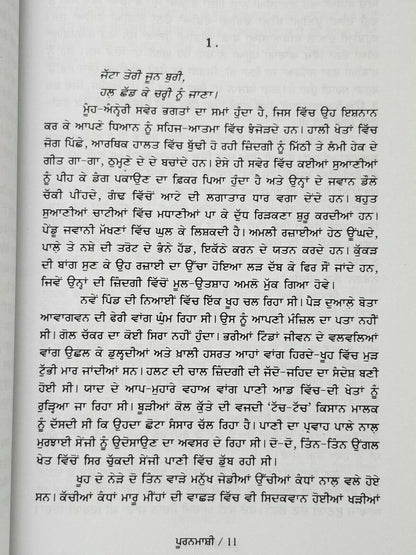 1.
ਜੱਟਾ ਤੇਰੀ ਜੂਨ ਬੁਰੀ,
ਹਲ਼ ਛੱਡ ਕੇ ਚਰ੍ਹੀ ਨੂੰ ਜਾਣਾ।
ਮੂੰਹ-ਅੰਨ੍ਹੇਰੀ ਸਵੇਰ ਭਗਤਾਂ ਦਾ ਸਮਾਂ ਹੁੰਦਾ ਹੈ, ਜਿਸ ਵਿੱਚ ਉਹ ਇਸ਼ਨਾਨ
ਕਰ ਕੇ ਆਪਣੇ ਧਿਆਨ ਨੂੰ ਸਹਿਜ-ਆਤਮਾ ਵਿੱਚ ਝੰਜੋੜਦੇ ਹਨ। ਹਾਲੀ ਖੇਤਾਂ ਵਿੱਚ
ਜੋਗ ਪਿੱਛੇ, ਆਰਥਿਕ ਹਾਲਤ ਵਿੱਚ ਬੁੱਢੀ ਹੋ ਰਹੀ ਜ਼ਿੰਦਗੀ ਨੂੰ ਮਿੱਠੀ ਤੇ ਲੰਮੀ ਹੇਕ ਦੇ
ਗੀਤ ਗਾ-ਗਾ, ਠੁਮ੍ਹਣੇ ਦੇ ਦੇ ਬਚਾਂਦੇ ਹਨ। ਏਸੇ ਹੀ ਸਵੇਰ ਵਿੱਚ ਕਈਆਂ ਸੁਆਣੀਆਂ
ਨੂੰ ਪੀਹ ਕੇ ਡੰਗ ਪਕਾਉਣ ਦਾ ਫ਼ਿਕਰ ਪਿਆ ਹੁੰਦਾ ਹੈ ਅਤੇ ਉਨ੍ਹਾਂ ਦੇ ਜਵਾਨ ਡੌਲੇ
ਚੱਕੀ ਪੀਂਹਦੇ, ਗੰਢ ਵਿੱਚੋਂ ਆਟੇ ਦੀ ਲਗਾਤਾਰ ਧਾਰ ਵਗਾ ਦੇਂਦੇ ਹਨ। ਬਹੁਤ
ਸੁਆਣੀਆਂ ਚਾਟੀਆਂ ਵਿੱਚ ਮਧਾਣੀਆਂ ਪਾ ਕੇ ਦੁੱਧ ਰਿੜਕਣਾ ਸ਼ੁਰੂ ਕਰਦੀਆਂ ਹਨ।
ਪੇਂਡੂ ਜਵਾਨੀ ਮੱਖਣਾਂ ਵਿੱਚੋਂ ਘੁਲ ਕੇ ਲਿਸ਼ਕਦੀ ਹੈ। ਅਮਲੀ ਰਜ਼ਾਈਆਂ ਹੇਠ ਊਂਘਦੇ,
ਪਾਲੇ ਤੇ ਨਸ਼ੇ ਦੀ ਤਰੋਟ ਦੇ ਭੰਨੇ ਹੱਡ, ਇਕੱਠੇ ਕਰਨ ਦੇ ਯਤਨ ਕਰਦੇ ਹਨ। ਕੁੱਕੜ
ਦੀ ਬਾਂਗ ਸੁਣ ਕੇ ਉਹ ਰਜ਼ਾਈ ਦਾ ਉੱਚਾ ਹੋਇਆ ਲੜ ਦੱਬ ਕੇ ਫਿਰ ਸੌਂ ਜਾਂਦੇ ਹਨ,
ਜਿਵੇਂ ਉਨ੍ਹਾਂ ਦੀ ਜ਼ਿੰਦਗੀ ਵਿੱਚੋਂ ਮੂਲ-ਉਤਸ਼ਾਹ ਅਮਲੋਂ ਮੁੱਕ ਗਿਆ ਹੋਵੇ।
ਨਵੇਂ ਪਿੰਡ ਦੀ ਨਿਆਈਂ ਵਿੱਚ ਇੱਕ ਖੂਹ ਚਲ ਰਿਹਾ ਸੀ। ਪੈੜ ਦੁਆਲੇ ਬੋਤਾ
ਆਵਾਗਵਨ ਦੀ ਫੇਰੀ ਵਾਂਗ ਘੁੰਮ ਰਿਹਾ ਸੀ। ਉਸ ਨੂੰ ਆਪਣੀ ਮੰਜ਼ਿਲ ਦਾ ਪਤਾ ਨਹੀਂ
ਸੀ। ਗੋਲ ਚੱਕਰ ਦਾ ਕੋਈ ਸਿਰਾ ਨਹੀਂ ਹੁੰਦਾ। ਭਰੀਆਂ ਟਿੰਡਾਂ ਜੀਵਨ ਦੇ ਵਲਵਲਿਆਂ
ਵਾਂਗ ਉਛਲ ਕੇ ਡੁਲ੍ਹਦੀਆਂ ਅਤੇ ਖ਼ਾਲੀ ਹਸਰਤ ਆਹਾਂ ਵਾਂਗ ਹਿਰਦੇ-ਖੂਹ ਵਿੱਚ ਮੁੜ
ਟੁੱਭੀ ਮਾਰ ਜਾਂਦੀਆਂ ਸਨ। ਹਲਟ ਦੀ ਚਾਲ ਜ਼ਿੰਦਗੀ ਦੀ ਜੱਦੋ-ਜਹਿਦ ਦਾ ਸੰਦੇਸ਼ ਬਣੀ
ਹੋਈ ਸੀ। ਯਾਦ ਦੇ ਆਪ-ਮੁਹਾਰੇ ਵਹਾਅ ਵਾਂਗ ਪਾਣੀ ਆਡ ਵਿੱਚ-ਦੀ ਖੇਤਾਂ ਨੂੰ
ਰੁੜ੍ਹਿਆ ਜਾ ਰਿਹਾ ਸੀ। ਬੂੜੀਆਂ ਕੋਲ ਕੁੱਤੇ ਦੀ ਵਜਦੀ ‘ਟੱਚ-ਟੱਚ’ ਕਿਸਾਨ ਮਾਲਕ
ਨੂੰ ਦੱਸਦੀ ਸੀ ਕਿ ਉਹਦਾ ਛੋਟਾ ਸੰਸਾਰ ਚੱਲ ਰਿਹਾ ਹੈ। ਪਾਣੀ ਦਾ ਪ੍ਰਵਾਹ ਪਾਲੇ ਨਾਲ਼
ਮੁਰਝਾਈ ਸੇਂਜੀ ਨੂੰ ਉਦੋਸਾਉਣ ਦਾ ਅਵਸਰ ਦੇ ਰਿਹਾ ਸੀ। ਦੋ-ਦੋ, ਤਿੰਨ-ਤਿੰਨ ਉਂਗਲ
ਖੇਤ ਵਿੱਚੋਂ ਸਿਰ ਚੁੱਕਦੀ ਸੇਂਜੀ ਪਾਣੀ ਵਿੱਚ ਡੁੱਬ ਰਹੀ ਸੀ।
ਖੂਹ ਦੇ ਨੇੜੇ ਦੋ ਤਿੰਨ ਵਾੜੇ ਮਨੁੱਖ ਜੇਡੀਆਂ ਉੱਚੀਆਂ ਕੰਧਾਂ ਨਾਲ਼ ਵਲੇ ਹੋਏ
ਸਨ। ਕੱਚੀਆਂ ਕੰਧਾਂ ਮਾਰੂ ਮੀਂਹਾਂ ਦੀ ਵਾਛੜ ਵਿੱਚ ਵੀ ਸਿਦਕਵਾਨ ਹੋਈਆਂ ਖੜੀਆਂ
ਪੂਰਨਮਾਸ਼ੀ / 11